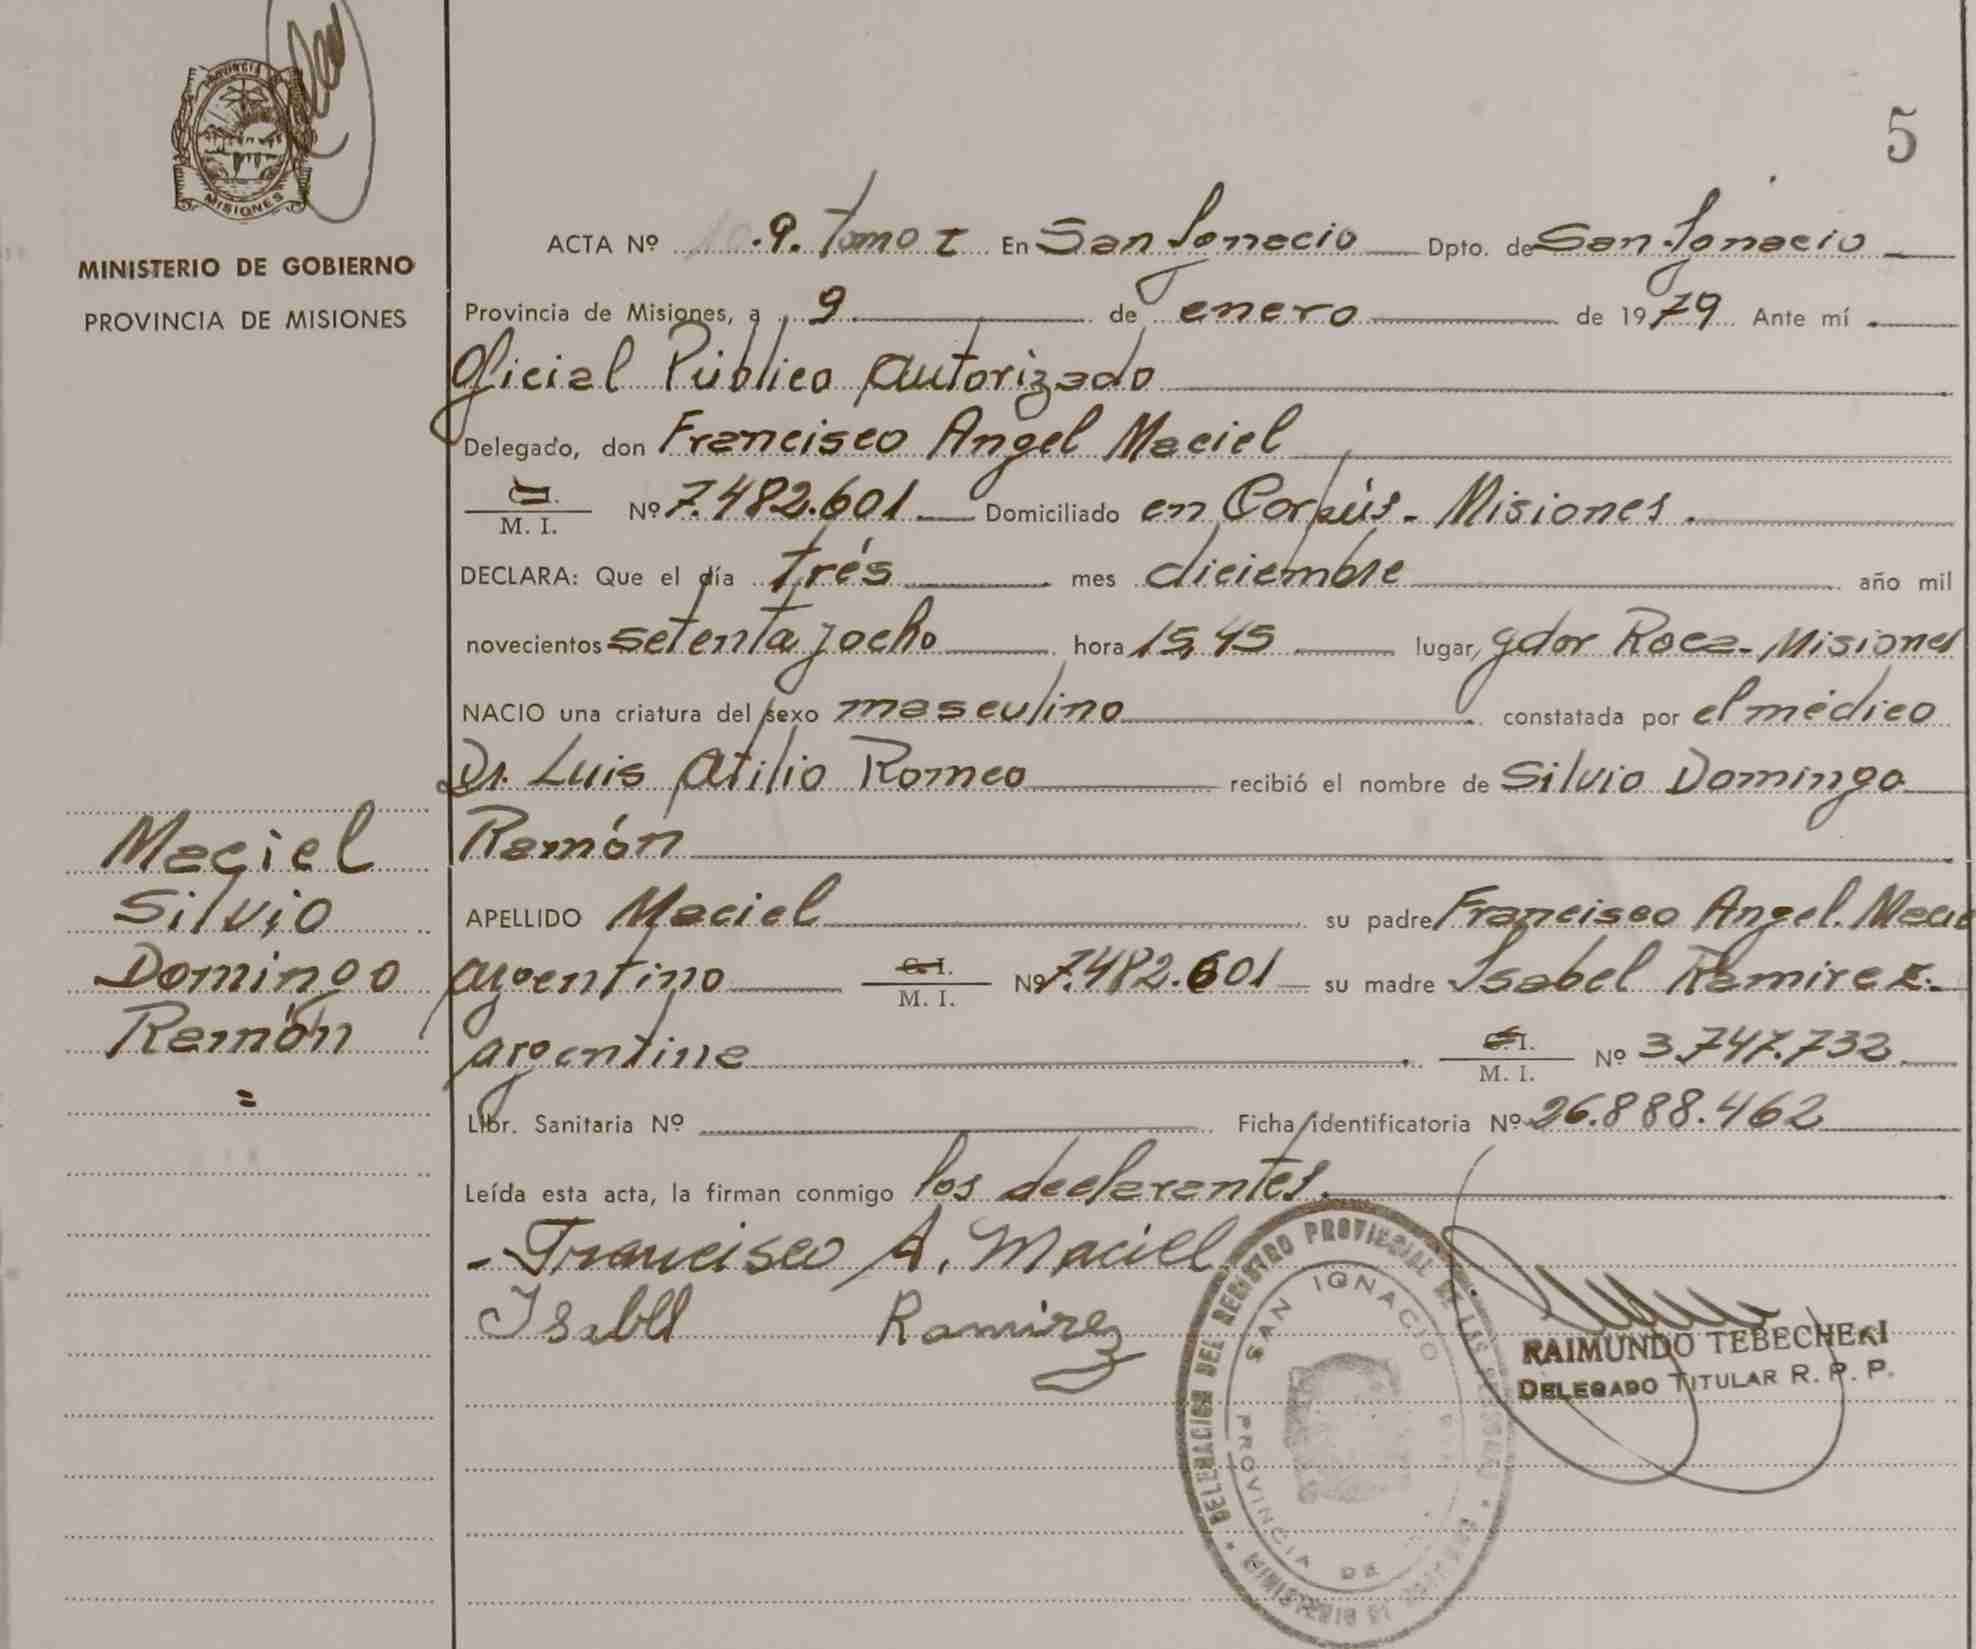 PROVINCIA DE
MISIONES
MINISTERIO DE GOBIERNO
PROVINCIA DE MISIONES
5
ACTA Nº 9. Tomo I En San Ignacio Dpto. de San Ignacio
Provincia de Misiones, a 9 de enero de 1979 Ante mí
Oficial Público autorizado
Delegado, don Francisco Angel Maciel
C.I.
M. I. Nº 7.482.601 Domiciliado en Corpús - Misiones.
DECLARA: Que el día trés mes diciembre año mil
novecientos setenta y ocho hora 15,45 lugar, gdor Roca - Misiones
NACIO una criatura del sexo masculino constatada por el médico
Dr. Luis Atilio Romeo recibió el nombre de Silvio Domingo
Ramón
APELLIDO Maciel su padre Francisco Angel. Maciel
argentino C.I. M. I. Nº 7.482.601 su madre Isabel Ramirez.
argentina C.I. M. I. Nº 3.747.732
Libr. Sanitaria Nº Ficha identificatoria Nº 26.888.462
Leída esta acta, la firman conmigo los declarantes.
Maciel
Silvio
Domingo
Ramón
=
- Francisco A. Maciel
Isabel Ramirez
RAIMUNDO TEBECHERI
DELEGADO TITULAR R. P. P.
DELEGACION DEL REGISTRO PROVINCIAL DE LAS PERSONAS
SAN IGNACIO
PROVINCIA DE